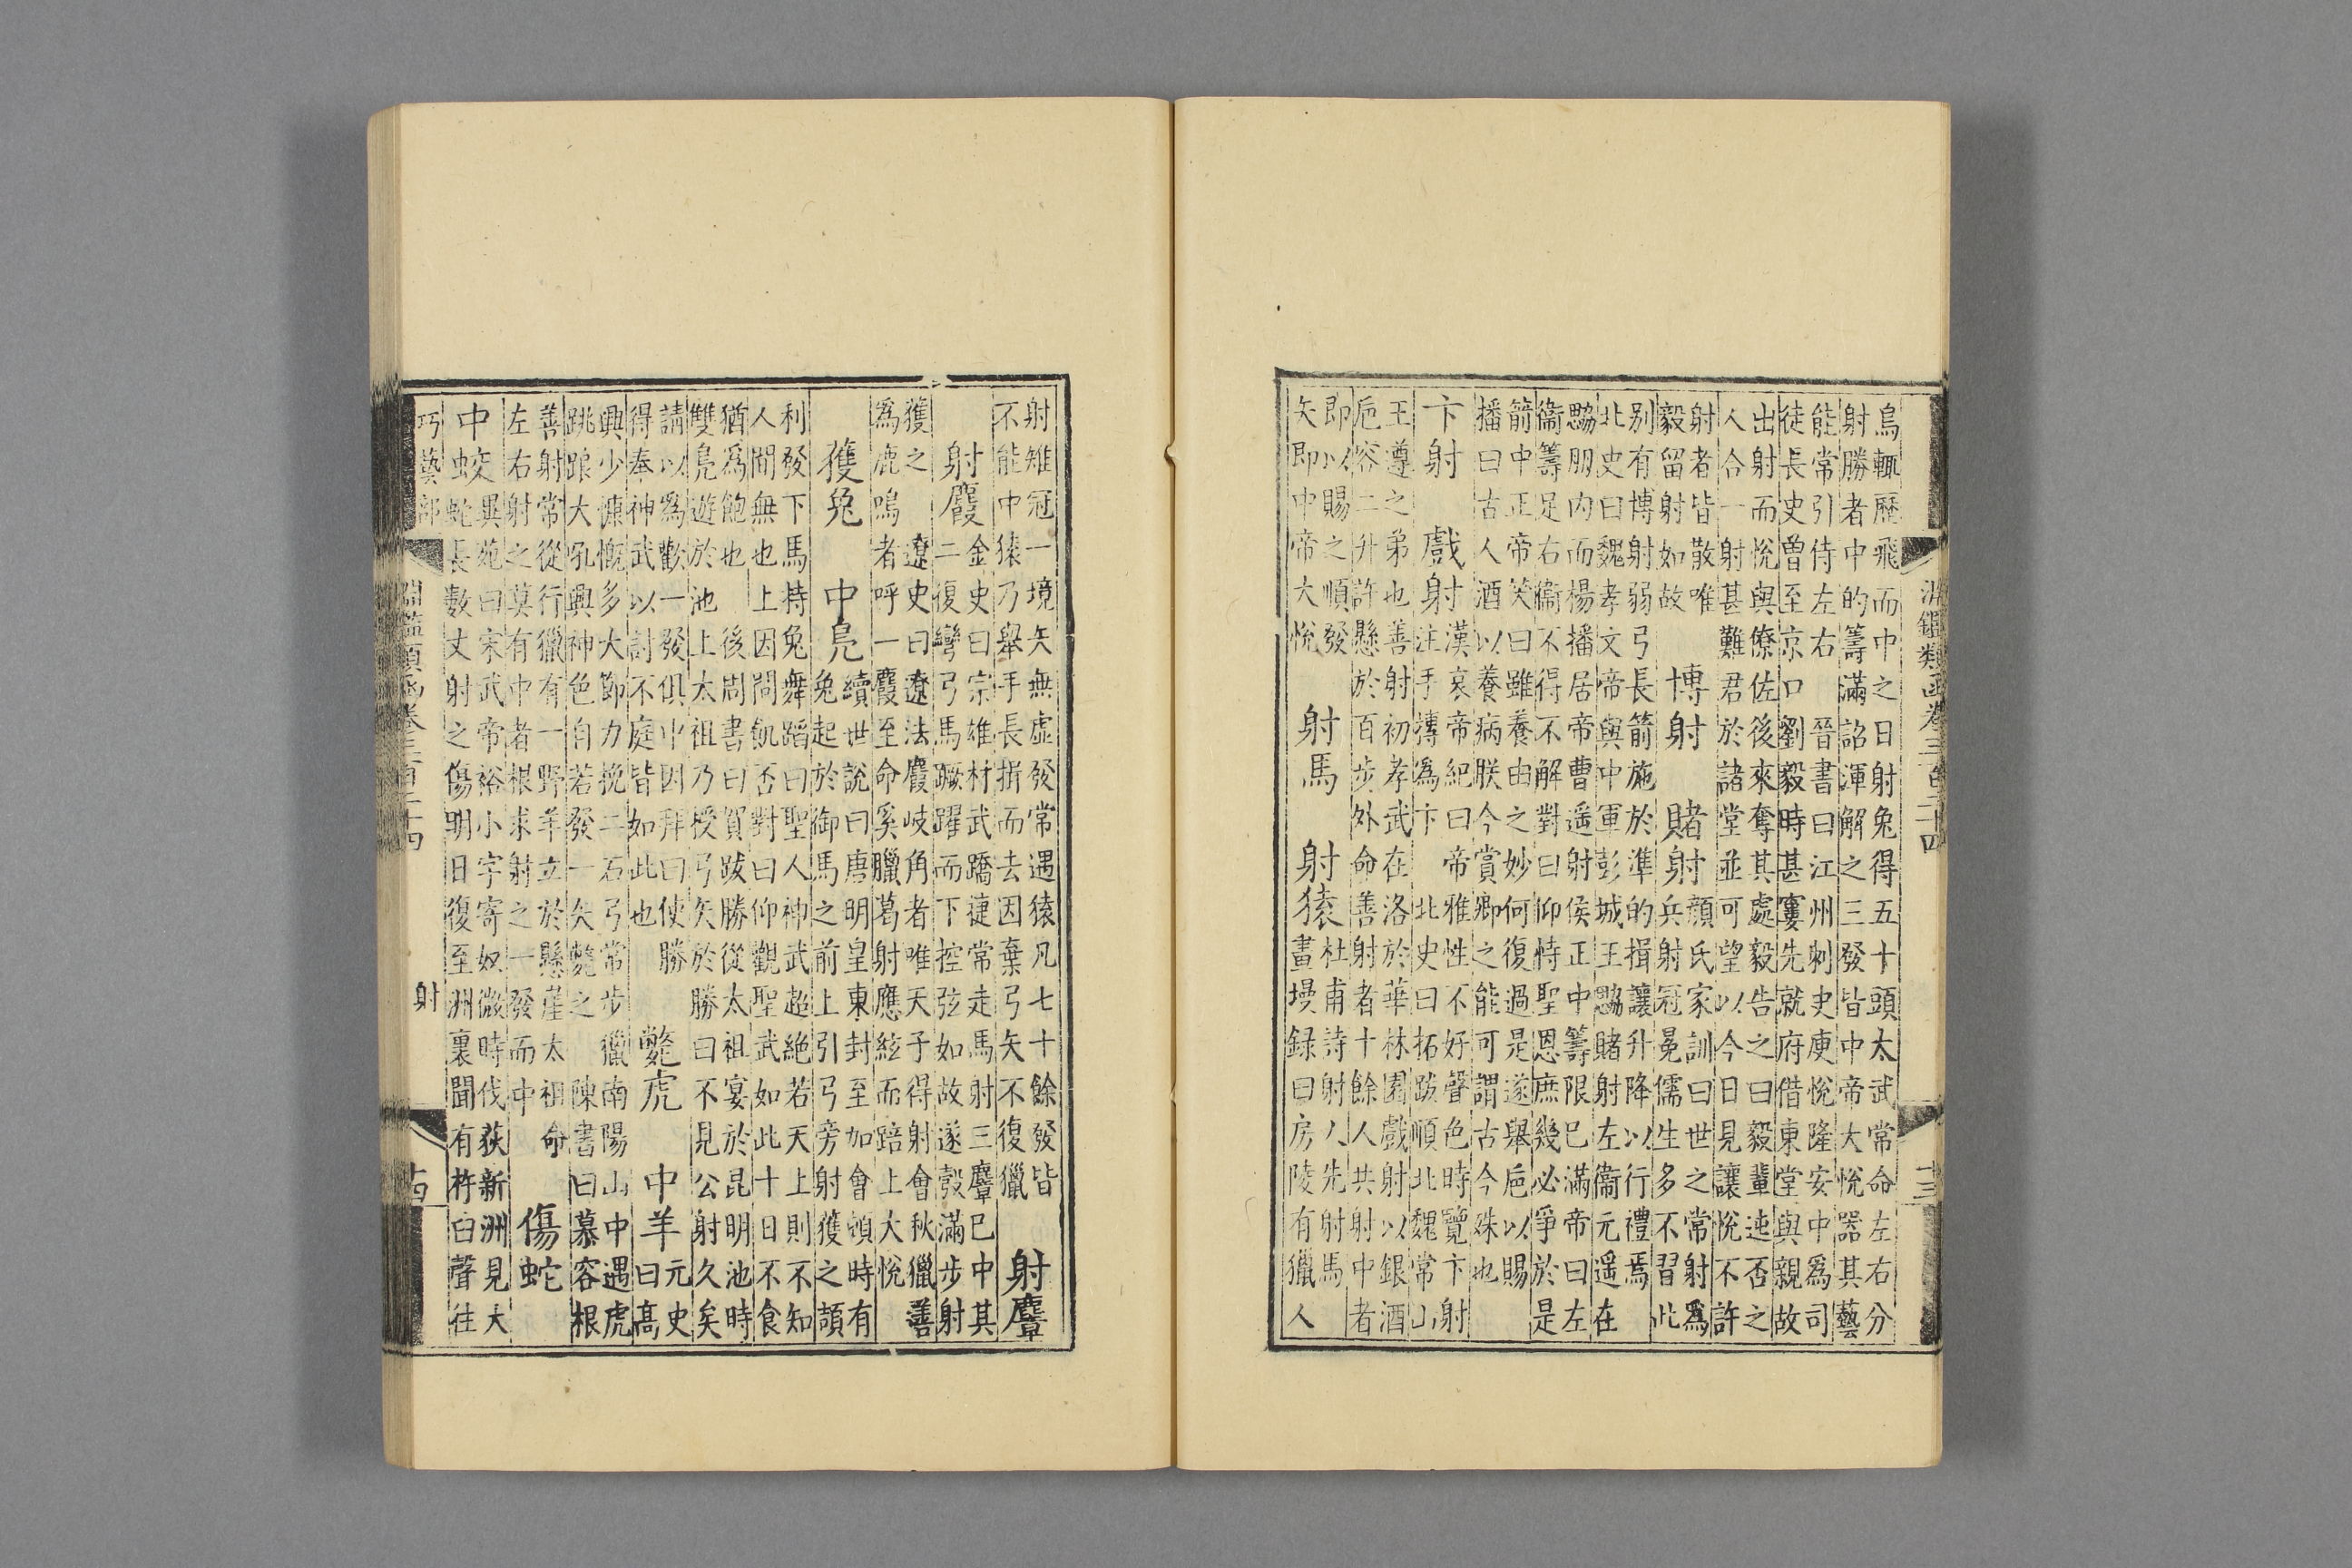 淵鑑類函卷三百二十四
十三
鳥輒歷飛而中之日射兔得五十頭太武常命左右分
射勝者中的籌滿詔渾解之三發皆中帝大悅器其藝
能常引侍左右 晉書曰江州刺史庾悅隆安中為司
徒長史曾至京口劉毅時甚窶先就府借東堂與親故
出射而悅與僚佐後來奪其處毅告之曰毅輩迍否之
人合一射甚難君於諸堂並可望以今日見讓悅不許
射者皆散唯
毅留射如故
博射 賭射
顏氏家訓曰世之常射為
兵射冠冕儒生多不習此
别有博射弱弓長箭施於準的揖讓升降以行禮焉
北史曰魏孝文帝與中軍彭城王勰賭射左衞元遥在
勰朋内而楊播居帝曹遥射侯正中籌限已滿帝曰左
衞籌足右衞不得不解對曰仰恃聖恩庶幾必爭於是
箭中正帝笑曰雖養由之妙何復過是遂舉巵以賜
播曰古人酒以養病朕今賞卿之能可謂古今殊也
卞射 戲射
漢哀帝紀曰帝雅性不好聲色時覽卞射
注手搏為卞 北史曰拓跋順北魏常山
王遵之弟也善射初孝武在洛於華林園戲射以銀酒
巵容二升許懸於百步外命善射者十餘人共射中者
即以賜之順發
矢即中帝大悅
射馬 射猿
杜甫詩射人先射馬
畫墁録曰房陵有獵人
射雉冠一境矢無虛發常遇猿凡七十餘發皆
不能中猿乃舉手長揖而去因棄弓矢不復獵
射麞
射麚
金史曰宗雄材武蹻捷常走馬射三麞已中其
二復彎弓馬蹶躍而下控弦如故遂彀滿步射
獲之 遼史曰遼法麚岐角者唯天子得射會秋獵善
為鹿鳴者呼一麚至命奚臘葛射應絃而踣上大悅
獲兔 中鳧
續世說曰唐明皇東封至加會頓時有
兔起於御馬之前上引弓旁射獲之頡
利發下馬持兔舞蹈曰聖人神武超絕若天上則不知
人間無也上因問飢否對曰仰觀聖武如此十日不食
猶為飽也 後周書曰賀跋勝從太祖宴於昆明池時
雙鳧遊於池上太祖乃授弓矢於勝曰不見公射久矣
請以為歡一發俱中因拜曰使勝
得奉神武以討不庭皆如此也
斃虎 中羊
元史
曰髙
興少慷慨多大節力挽二石弓常步獵南陽山中遇虎
跳踉大吼興神色自若發一矢斃之 陳書曰慕容根
善射常從行獵有一野羊立於懸崖太祖命
左右射之莫有中者根求射之一發而中
傷蛇
中蛟
異苑曰宋武帝裕小字寄奴微時伐荻新洲見大
蛇長數丈射之傷明日復至洲裏聞有杵臼聲往
巧藝部
淵鑑類函卷三百二十四
射
十四